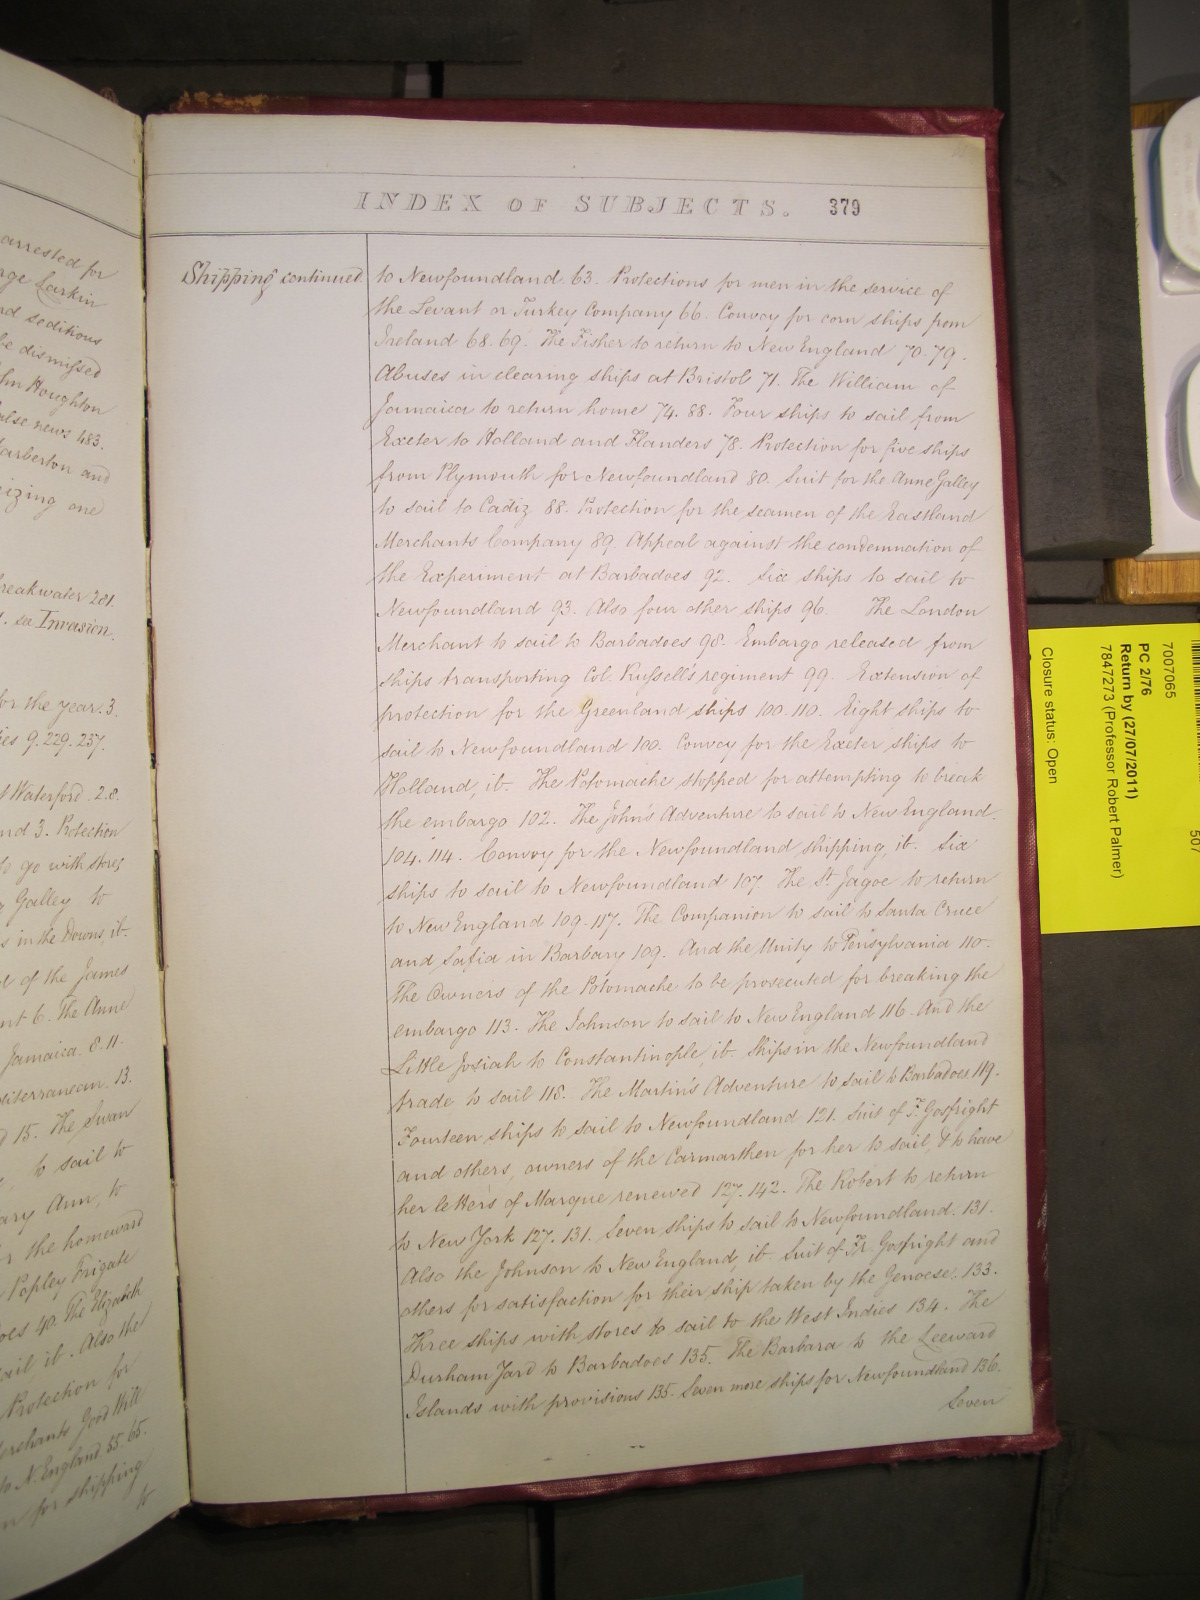 arrested for
Larkin
nd seditious
be dismissed
Houghton
alse news 483.
arberton and
eizing one
reakwater 281.
see Invasion.
or the year 3.
9. 229. 237.
Waterford. 2. 8.
nd 3. Protection
to go with stores
Galley to
s in the Downs, ib.
d of the James
nt 6. The Anne
Jamaica. 8. 11.
diterranean. 13.
15. The Swan
to sail to
ary Ann, to
r the homeward
Popley Frigate
oes 40. The Elizabeth
sail, ib. Also the
Protection for
erchants Good Will
to N. England. 55. 65.
n for shipping
to
INDEX OF SUBJECTS. 379
Shipping continued
to Newfoundland 63. Protections for men in the service of
the Levant or Turkey Company 66. Convoy for corn ships from
Ireland 68. 69. The Fisher to return to New England 70. 79.
Abuses in clearing ships at Bristol 71. The William of
Jamaica to return home 74. 88. Four ships to sail from
Exeter to Holland and Flanders 78. Protection for five ships
from Plymouth for Newfoundland 80. Suit for the Anne Galley
to sail to Cadiz 88. Protection for the seamen of the Eastland
Merchants Company 89. Appeal against the condemnation of
the Experiment at Barbadoes 92. Six ships to sail to
Newfoundland 93. Also four other ships 96. The London
Merchant to sail to Barbadoes 98. Embargo released from
ships transporting Col. Russell's regiment 99. Extension of
protection for the Greenland ships 100. 110. Eight ships to
sail to Newfoundland 100. Convoy for the Exeter ships to
Holland, ib. The Potomache stopped for attempting to break
the embargo 102. The John's Adventure to sail to New England.
104. 114. Convoy for the Newfoundland shipping, ib. Six
ships to sail to Newfoundland 107. The St. Jagoe to return
to New England 109. 117. The Companion to sail to Santa Cruce
and Safia in Barbary 109. And the Unity to Pensylvania 110.
The Owners of the Potomache to be prosecuted for breaking the
embargo 113. The Johnson to sail to New England 116. And the
Little Josiah to Constantinople, ib. Ships in the Newfoundland
trade to sail 118. The Martin's Adventure to sail to Barbadoes 119.
Fourteen ships to sail to Newfoundland 121. Suit of F. Gosfright
and others, owners of the Carmarthen for her to sail, & to have
her letters of Marque renewed 127. 142. The Robert to return
to New York 127. 131. Seven ships to sail to Newfoundland. 131.
Also the Johnson to New England, ib. Suit of Fr. Gosfright and
others for satisfaction for their ship taken by the Genoese. 133.
Three ships with stores to sail to the West Indies 134. The
Durham Yard to Barbadoes 135. The Barbara to the Leeward
Islands with provisions 135. Seven more ships for Newfoundland 136.
Seven
7007065
507
PC 2/76
Return by (27/07/2011)
7847273 (Professor Robert Palmer)
Closure status: Open